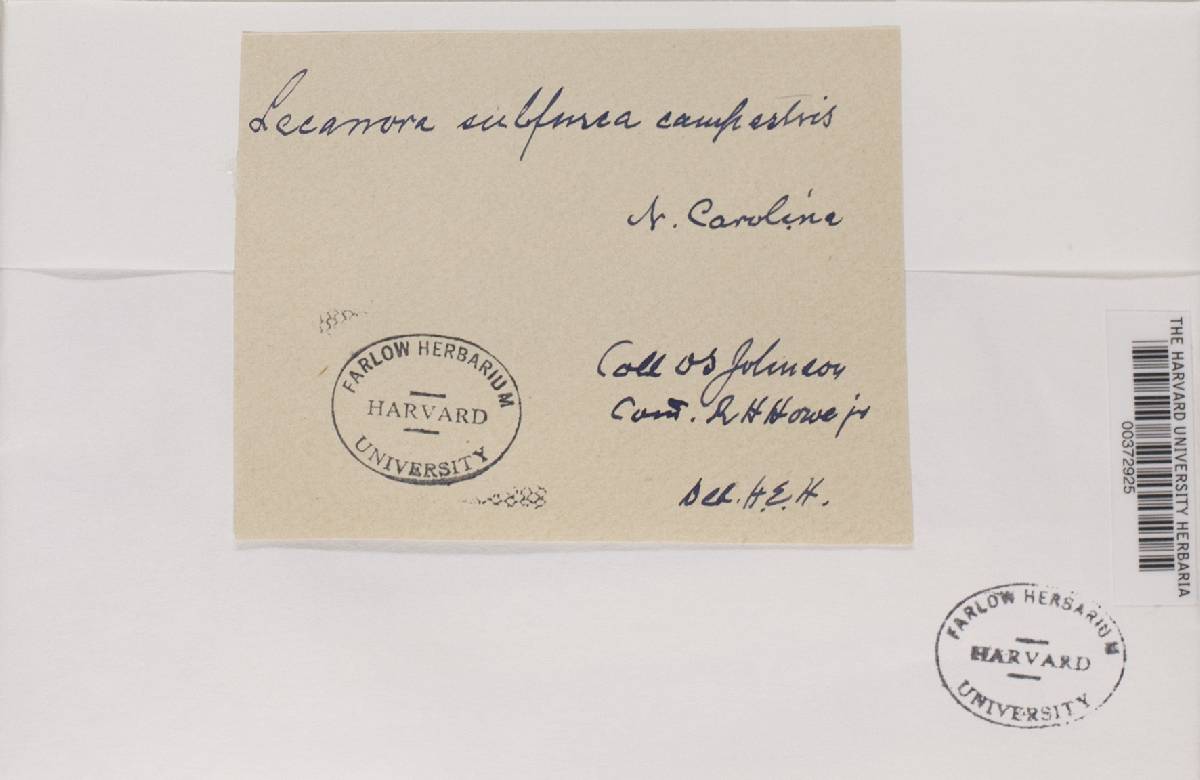 Lecanora subfusca campestris
N. Carolina
Coll O S Johnson
Com. R H Howe jr
Det. H. E. H.
FARLOW HERBARIUM
HARVARD
UNIVERSITY
THE HARVARD UNIVERSITY HERBARIA
00372925
FARLOW HERBARIUM
HARVARD
UNIVERSITY